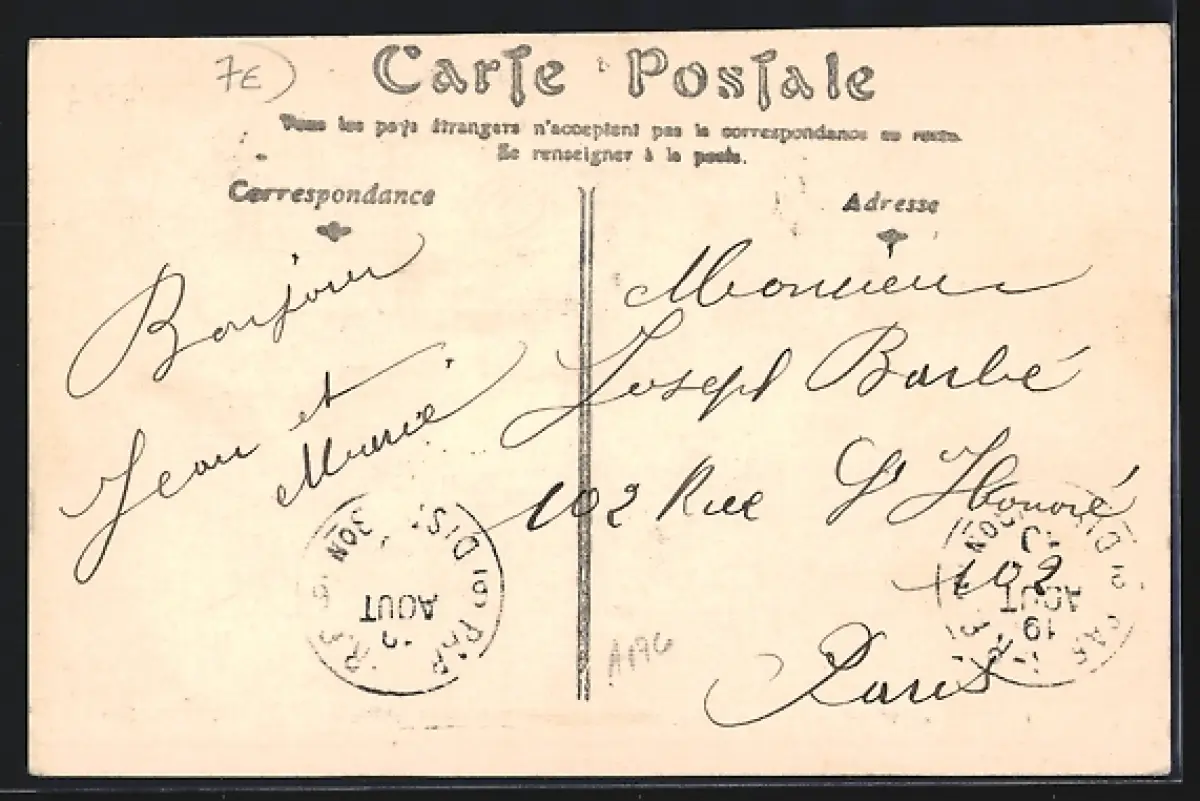 7E)
Carte Postale
Tous les pays étrangers n'acceptent pas la correspondance au recto.
Se renseigner à la poste.
Correspondance
Bonjour
Jean et
Marie
Adresse
Monsieur
Joseph Barbé
102 Rue St Honoré
102
Paris
AOUT
19
AOUT
PAR
DIS
A176